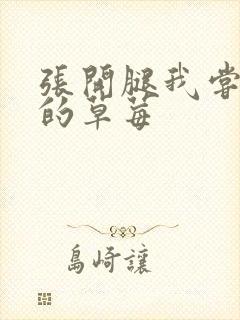 張開腿我嘗
的草莓
島崎讓